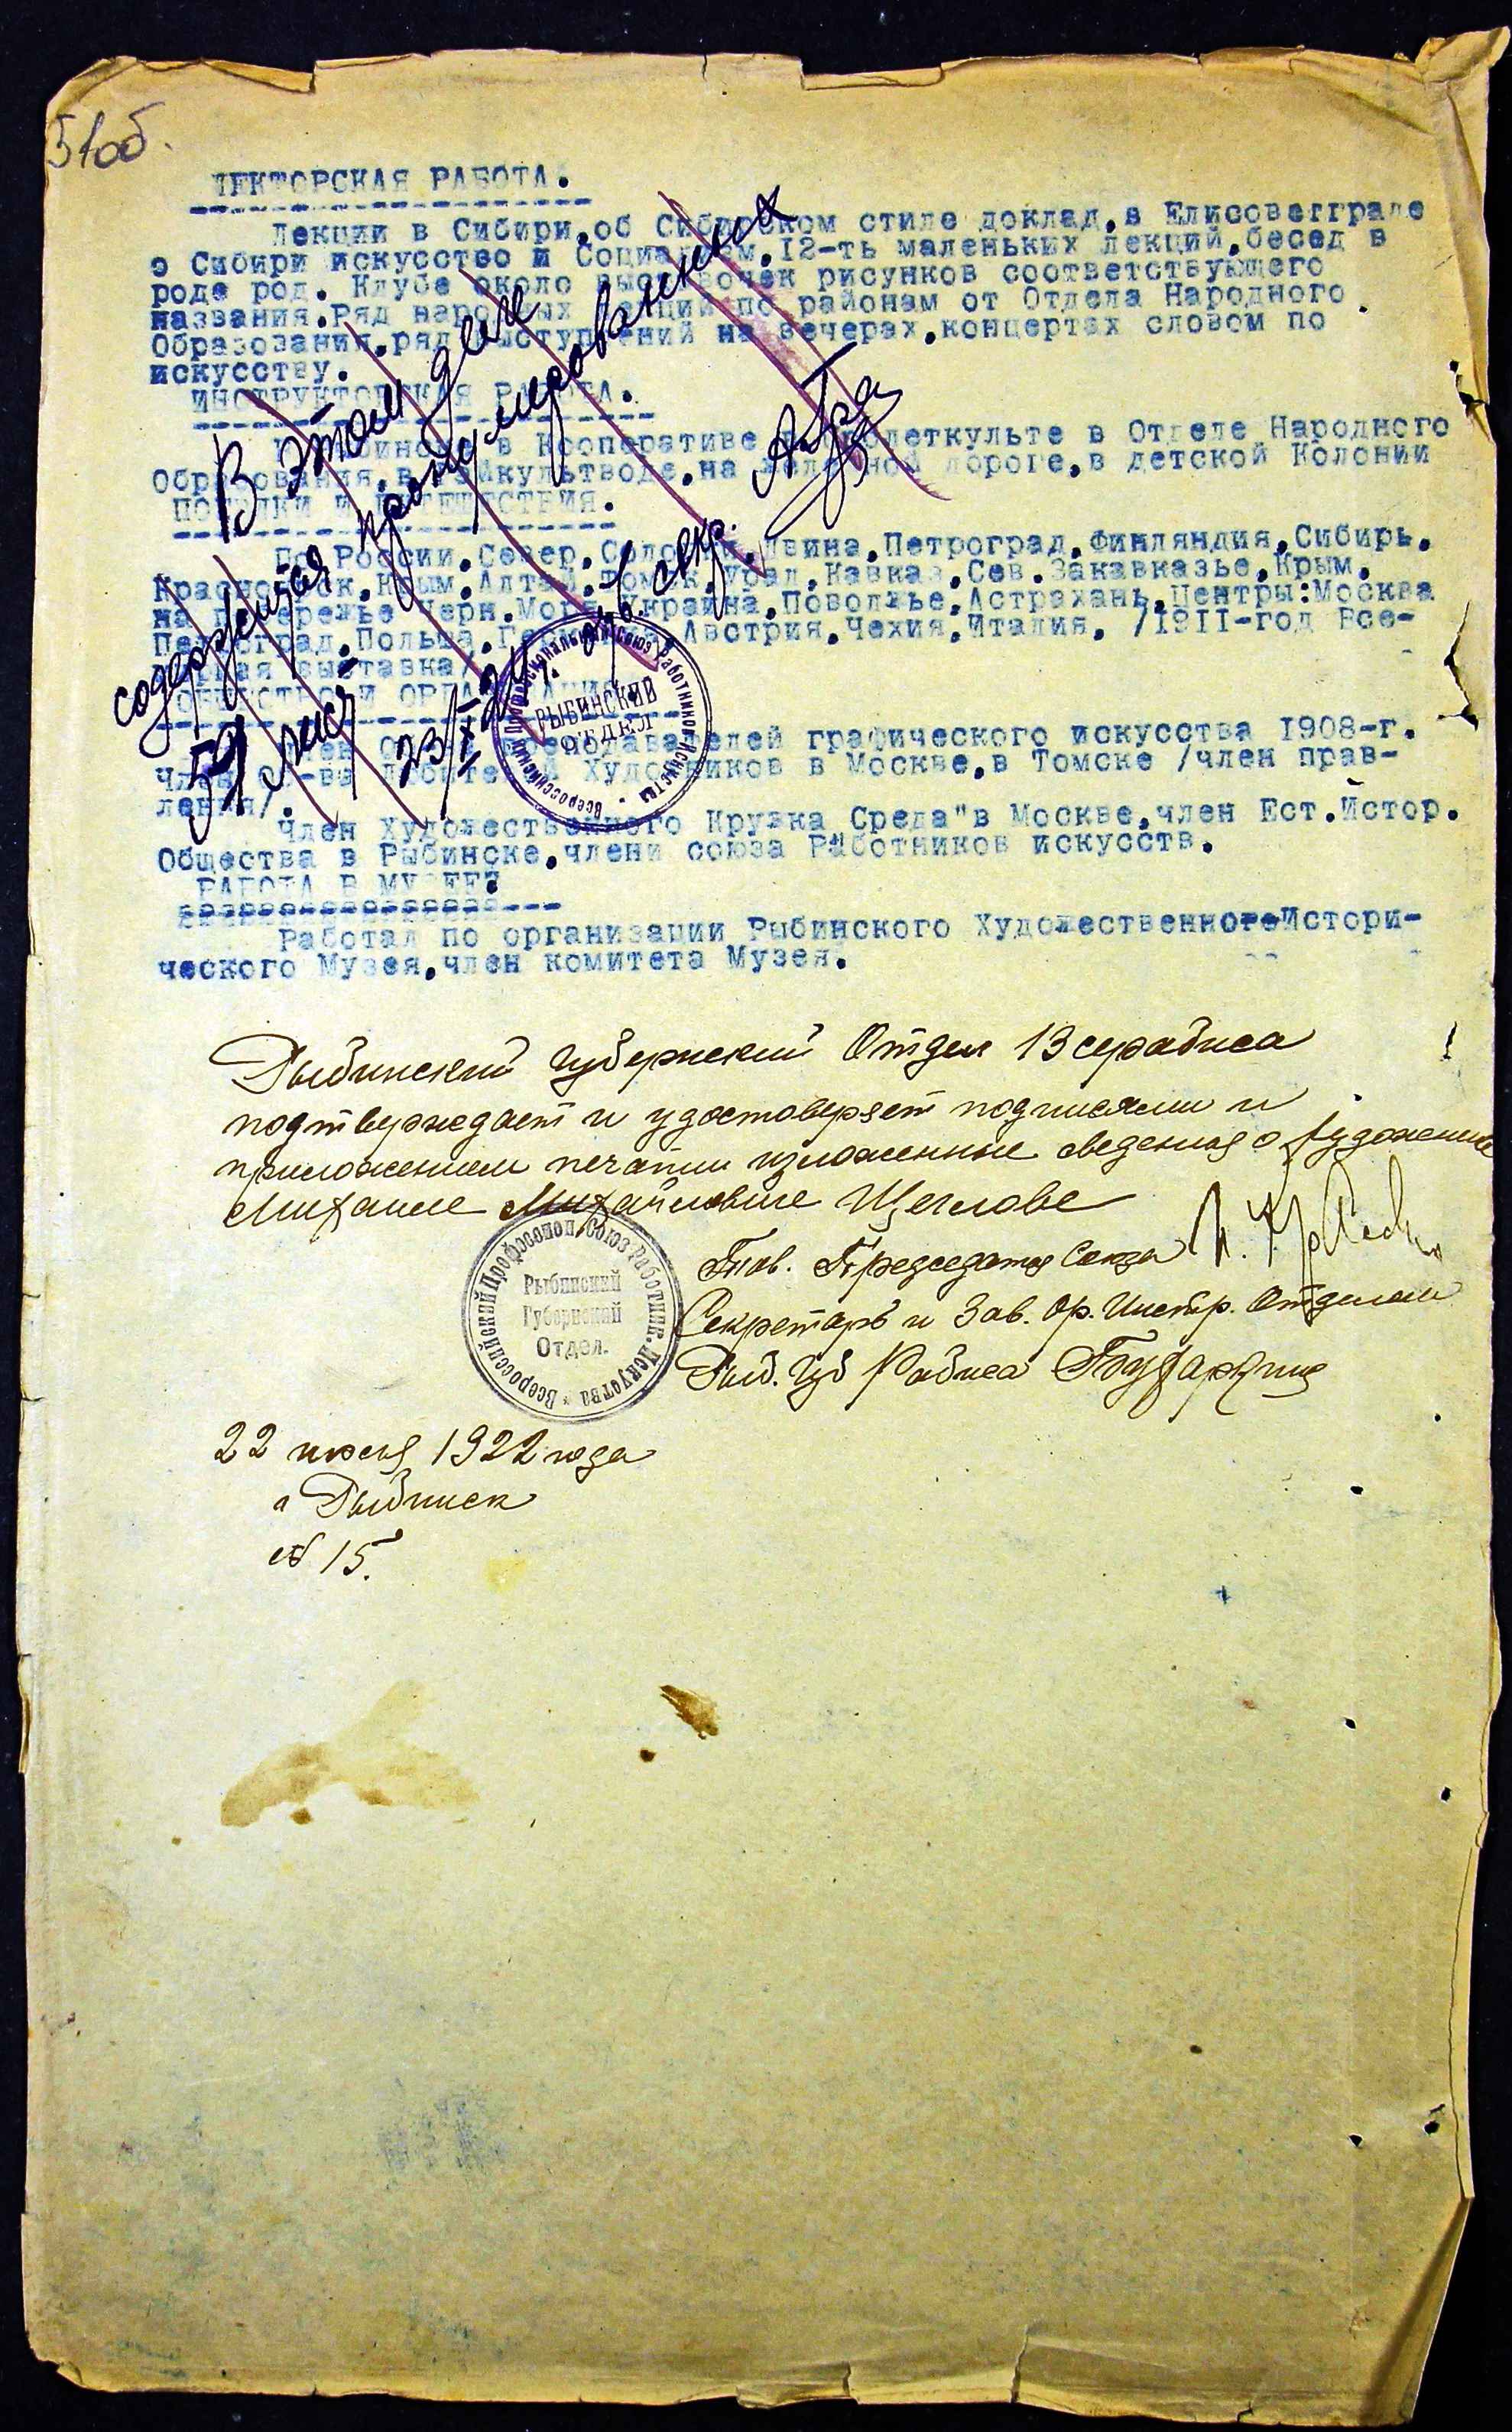 51об.
ЛЕКТОРСКАЯ РАБОТА.
Лекции в Сибири,об Сибирском стиле доклад,в Елисоветграде
э Сибири искусство и Социализм.12-ть маленьких лекций,бесед в
роде род. Клубе около выставочек рисунков соответствующего
названия.Ряд народных лекций по районам от Отдела Народного
Образования,ряд выступлений на вечерах,концертах словом по
искусству.
ИНСТРУКТОРСКАЯ РАБОТА.
в Кооперативе Пролеткульте в Отделе Народного
Образования,в на железной дороге,в детской Колонии
ПОЕЗДКИ И ПУТЕШЕСТВИЯ.
По России.Север.Соловки.Двина.Петроград.Финляндия.Сибирь.
Красноярск.Крым.Алтай.Томск.Урал.Кавказ.Сев.Закавказье.Крым.
на побережье Черн.Моря.Украина.Поволжье.Астрахань.Центры:Москва
Петроград.Польша.Германия.Австрия.Чехия.Италия. /1911-год Все-
мирная выставка/.
ОБЩЕСТВО И ОРГАНИЗАЦИИ.
Член Преподавателей графического искусства 1908-г.
член О-ва Художников в Москве,в Томске /член прав-
ления/.
Член Художественного Кружка Среда"в Москве,член Ест.Истор.
Общества в Рыбинске.члени союза Работников искусств.
РАБОТА В МУЗЕЕ?
Работал по организации Рыбинского ХудожественногоИстори-
ческого Музея.член комитета Музея.
В этом деле
содержится пронумерованных
59 лист
23/IX-24 г. секр.
Всероссийский Профессиональный Союз Работников Искусства
РЫБИНСКИЙ
ОТДЕЛ
Рыбинский Губернский Отдел Всерабиса
подтверждает и удостоверяет подписями и
приложением печати изложенные сведения о художнике
Михаиле Михайловиче Щеглове
Тов. Председателя Союза
Секретарь и Зав. Ор. Инстр. Отделом
Рыб. Губ Рабиса
Всероссийский Професснон. Союз Работник. Искуства
Рыбинский
Губернский
Отдел.
22 июня 1922 года
г Рыбинск
№ 15.